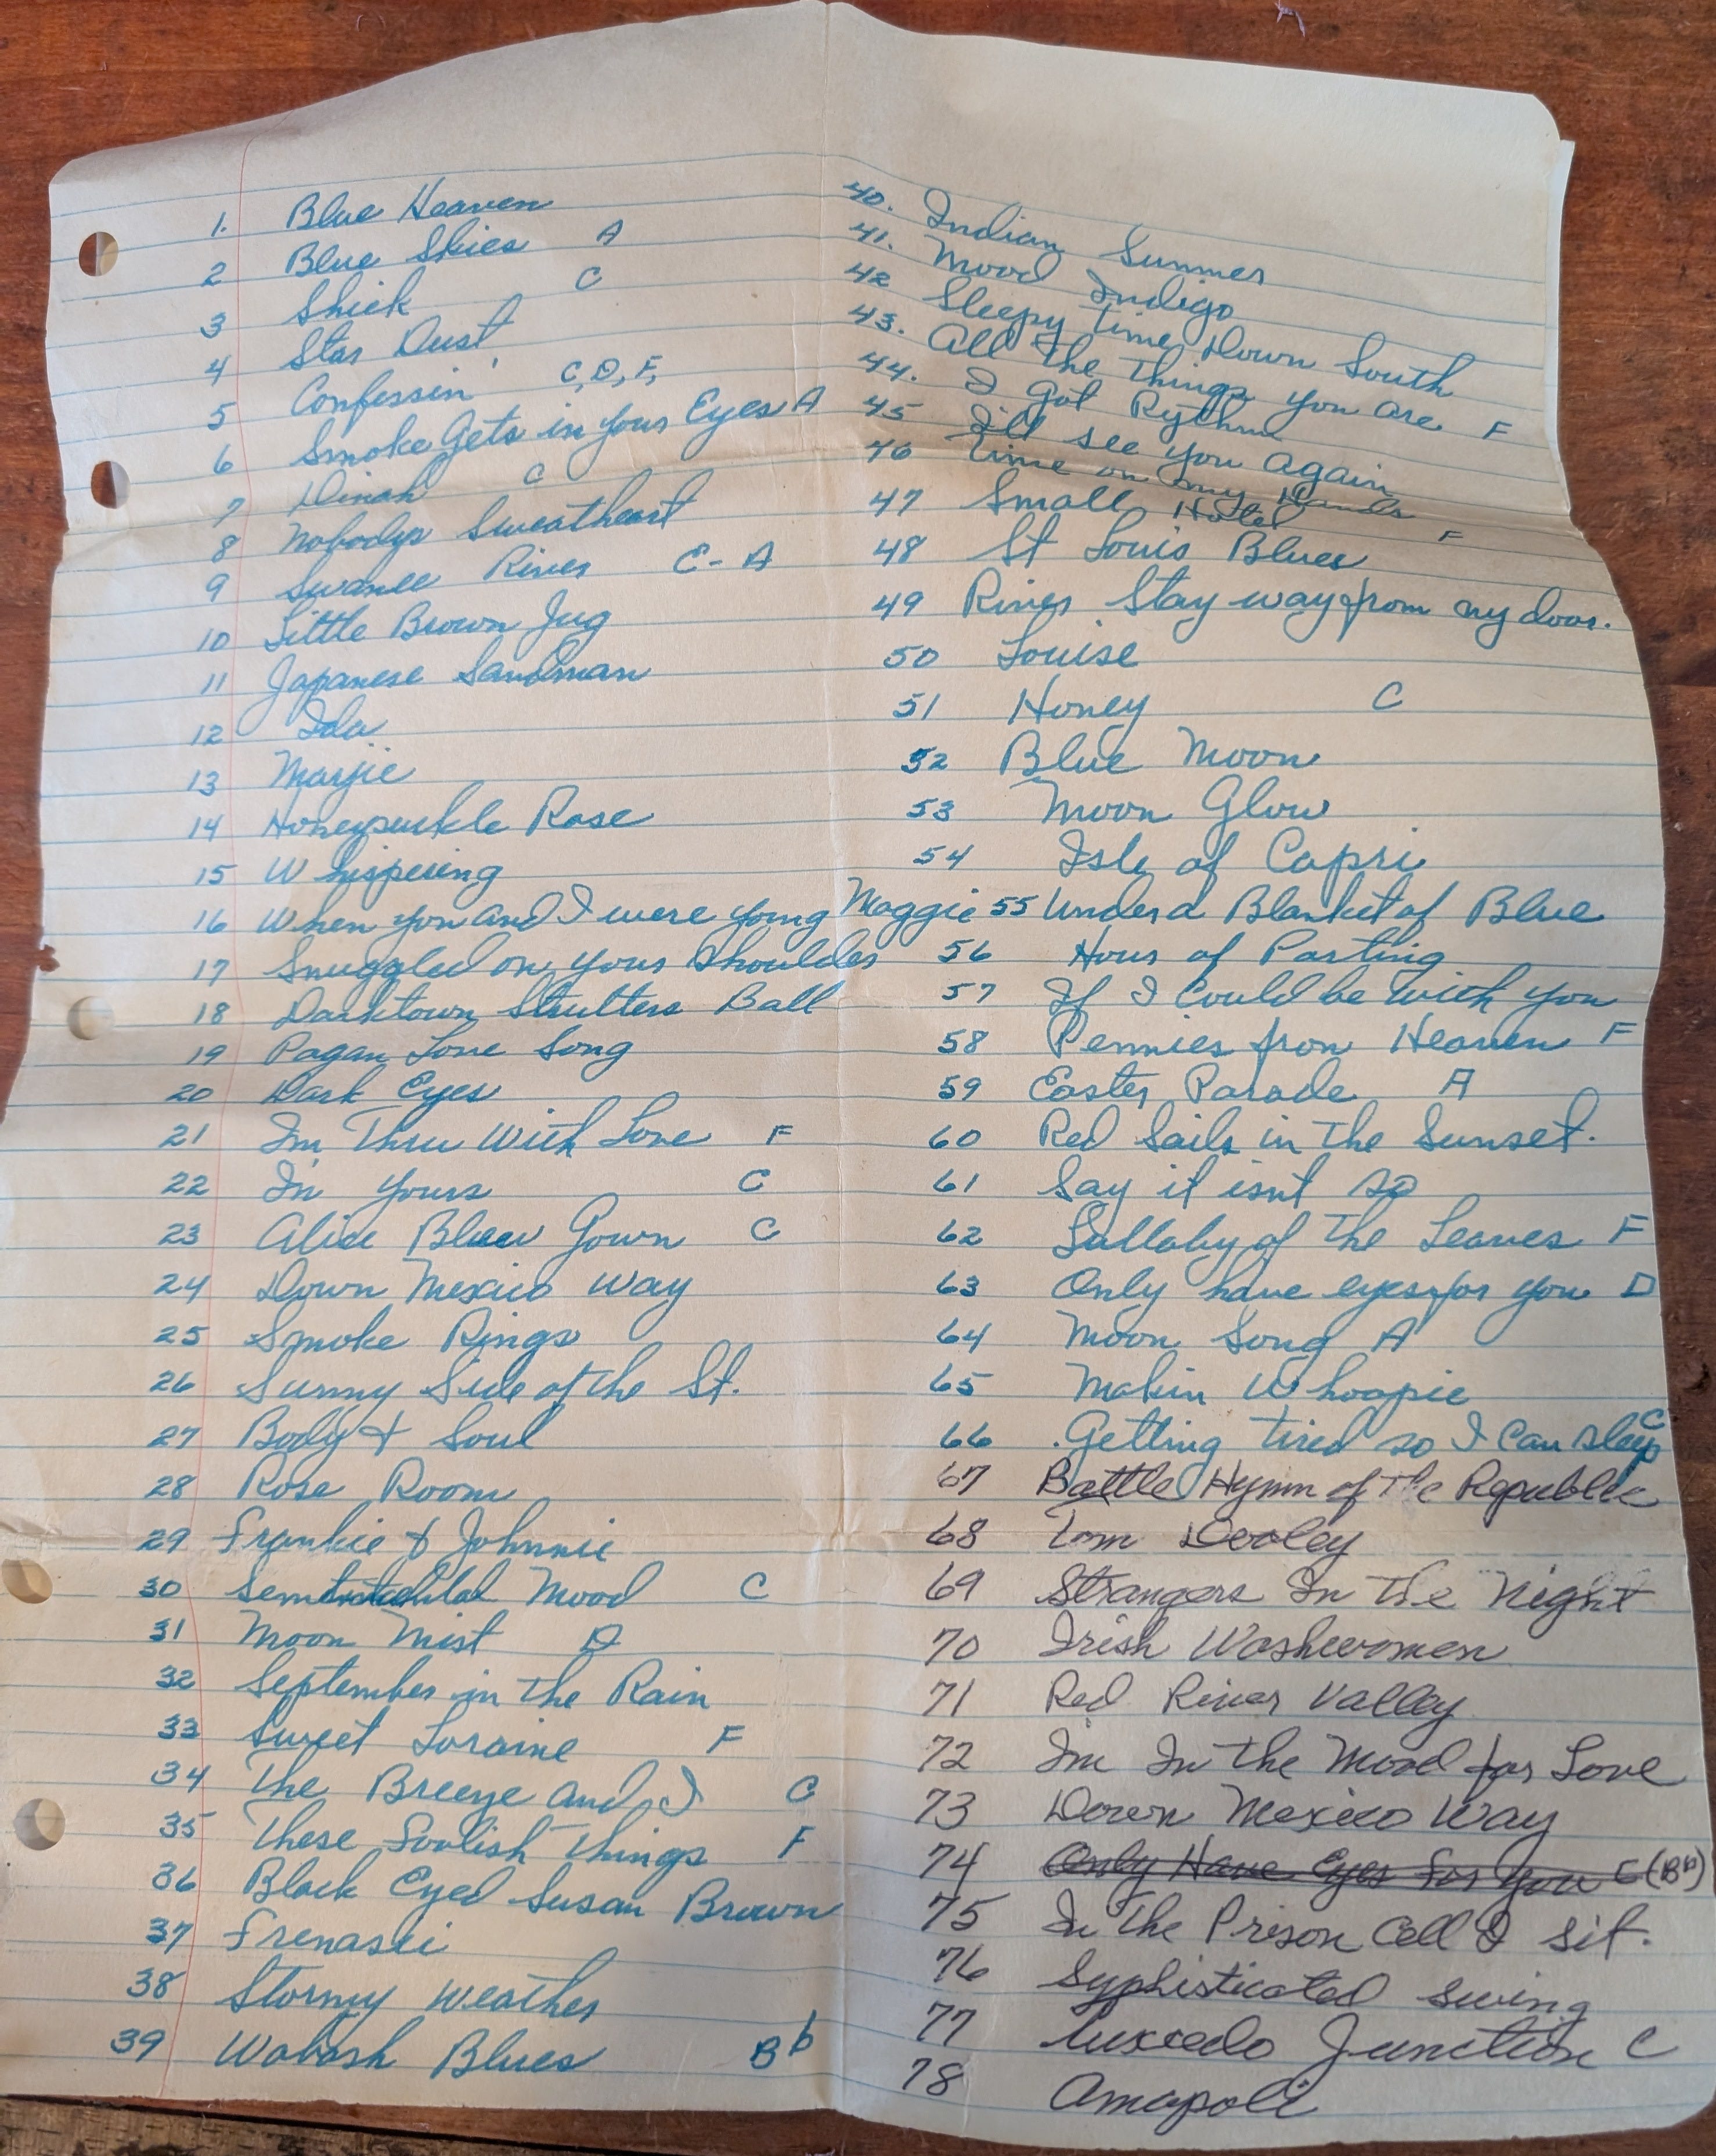 1. Blue Heaven
2 Blue Skies A
3 Shiek C
4 Star Dust
5 Confessin' C, D, F,
6 Smoke Gets in your Eyes A
7 Dinah C
8 Nobodys Sweetheart
9 Swanee River E - A
10 Little Brown Jug
11 Japanese Sandman
12 Ida
13 Marjie
14 Honeysuckle Rose
15 Whispering
16 When you and I were young Maggie
17 Snuggled on your Shoulder
18 Darktown Strutters Ball
19 Pagan Love Song
20 Dark Eyes
21 Im Thru With Love F
22 Im Yours C
23 Alice Blue Gown C
24 Down Mexico Way
25 Smoke Rings
26 Sunny Side of the St.
27 Body & Soul
28 Rose Room
29 Frankie & Johnnie
30 Mood C
31 Moon Mist D
32 September in the Rain
33 Sweet Loraine F
34 The Breeze and I C
35 These Foolish Things F
36 Black Eyed Susan Brown
37 Frenasei
38 Stormy Weather
39 Wabash Blues Bb
40. Indian Summer
41. Mood Indigo
42 Sleepy time Down South
43. All the things you are F
44. I Got Rythm
45 I'll see you again
46 Time on my Hands F
47 Small Hotel
48 St Louis Blues
49 River Stay way from my door.
50 Louise
51 Honey C
52 Blue Moon
53 Moon Glow
54 Isle of Capri
55 Under a Blanket of Blue
56 Hour of Parting
57 If I Could be With you
58 Pennies from Heaven F
59 Easter Parade A
60 Red Sails in the Sunset.
61 Say it isnt so
62 Lullaby of the Leaves F
63 Only have eyes for you D
64 Moon Song A
65 Makin Whoopie
66 Getting tired so I Can sleep C
67 Battle Hymn of the Republic
68 Tom Dooley
69 Strangers In the Night
70 Irish Washwomen
71 Red River Valley
72 Im In the Mood for Love
73 Down Mexico Way
74 Only Have Eyes for you C (Bb)
75 In the Prison Cell I sit.
76 Syphisticated swing
77 Tuxcedo Junction C
78 Amapoli